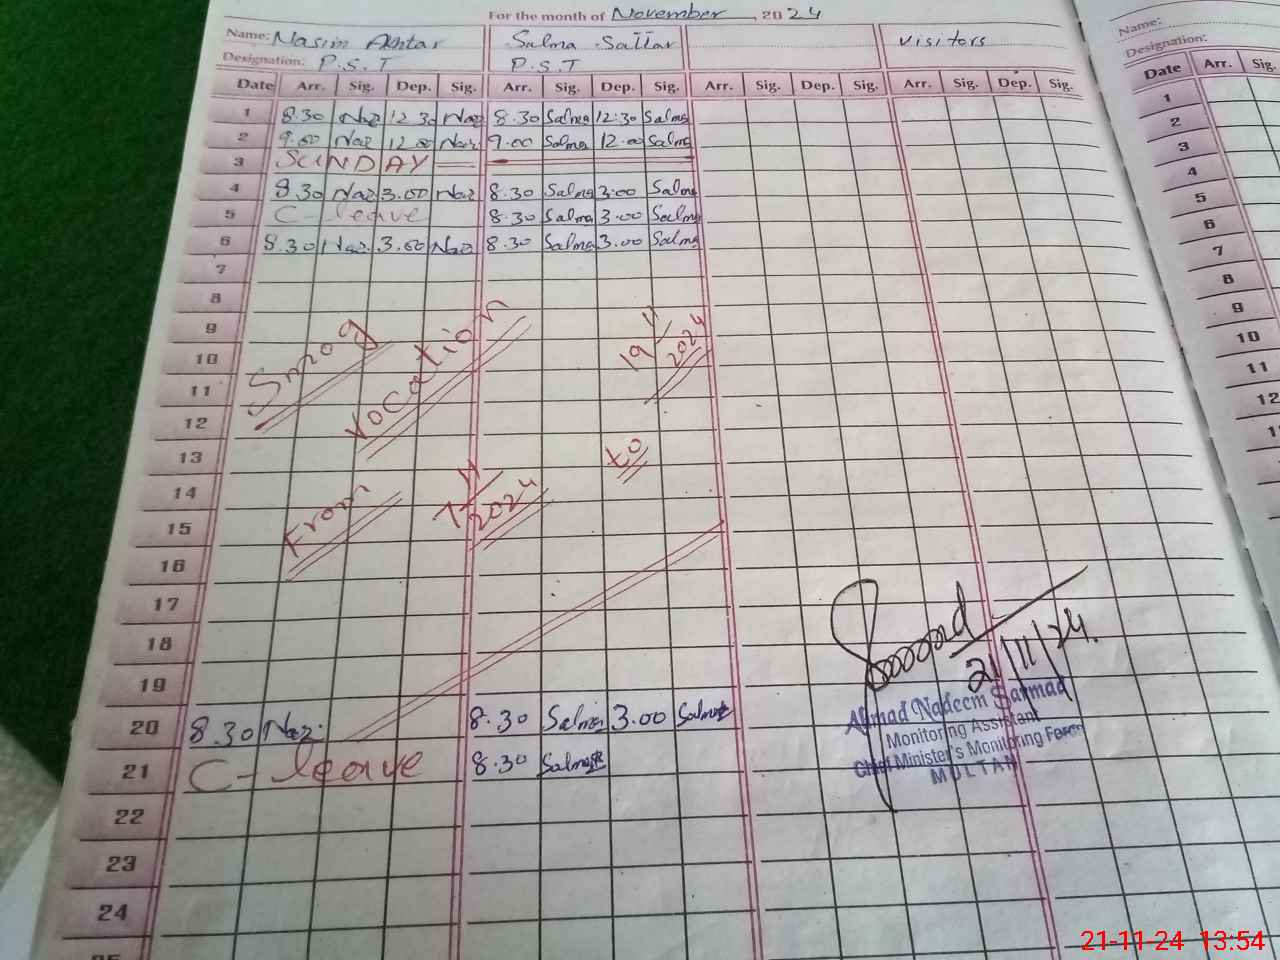 For the month of November, 2024
Name: Nasim Akhtar Salma Sattar visitors
Designation: P.S.T P.S.T
Date Arr. Sig. Dep. Sig. Arr. Sig. Dep. Sig. Arr. Sig. Dep. Sig. Arr. Sig. Dep. Sig.
1 8.30 Naz 12.30 Naz 8.30 Salma 12:30 Salma
2 9.00 Naz 12.00 Naz 9.00 Salma 12.00 Salma
3 SUNDAY
4 8.30 Naz 3.00 Naz 8.30 Salma 3.00 Salma
5 C-leave 8.30 Salma 3.00 Salma
6 8.30 Naz 3.00 Naz 8.30 Salma 3.00 Salma
7
8
9
10
11
12
13
14
15
16
17
18
19
Smog vocation
From 7/11/2024 to 19/11/2024
20 8.30 Naz 8.30 Salma 3.00 Salma
21 C-leave 8.30 Salma
22
23
24
25
21/11/24.
Ahmad Nadeem Sarmad
Monitoring Assistant
Chief Minister's Monitoring Force
MULTAN
Name:
Designation:
Date Arr. Sig.
1
2
3
4
5
6
7
8
9
10
11
12
21-11-24 13:54